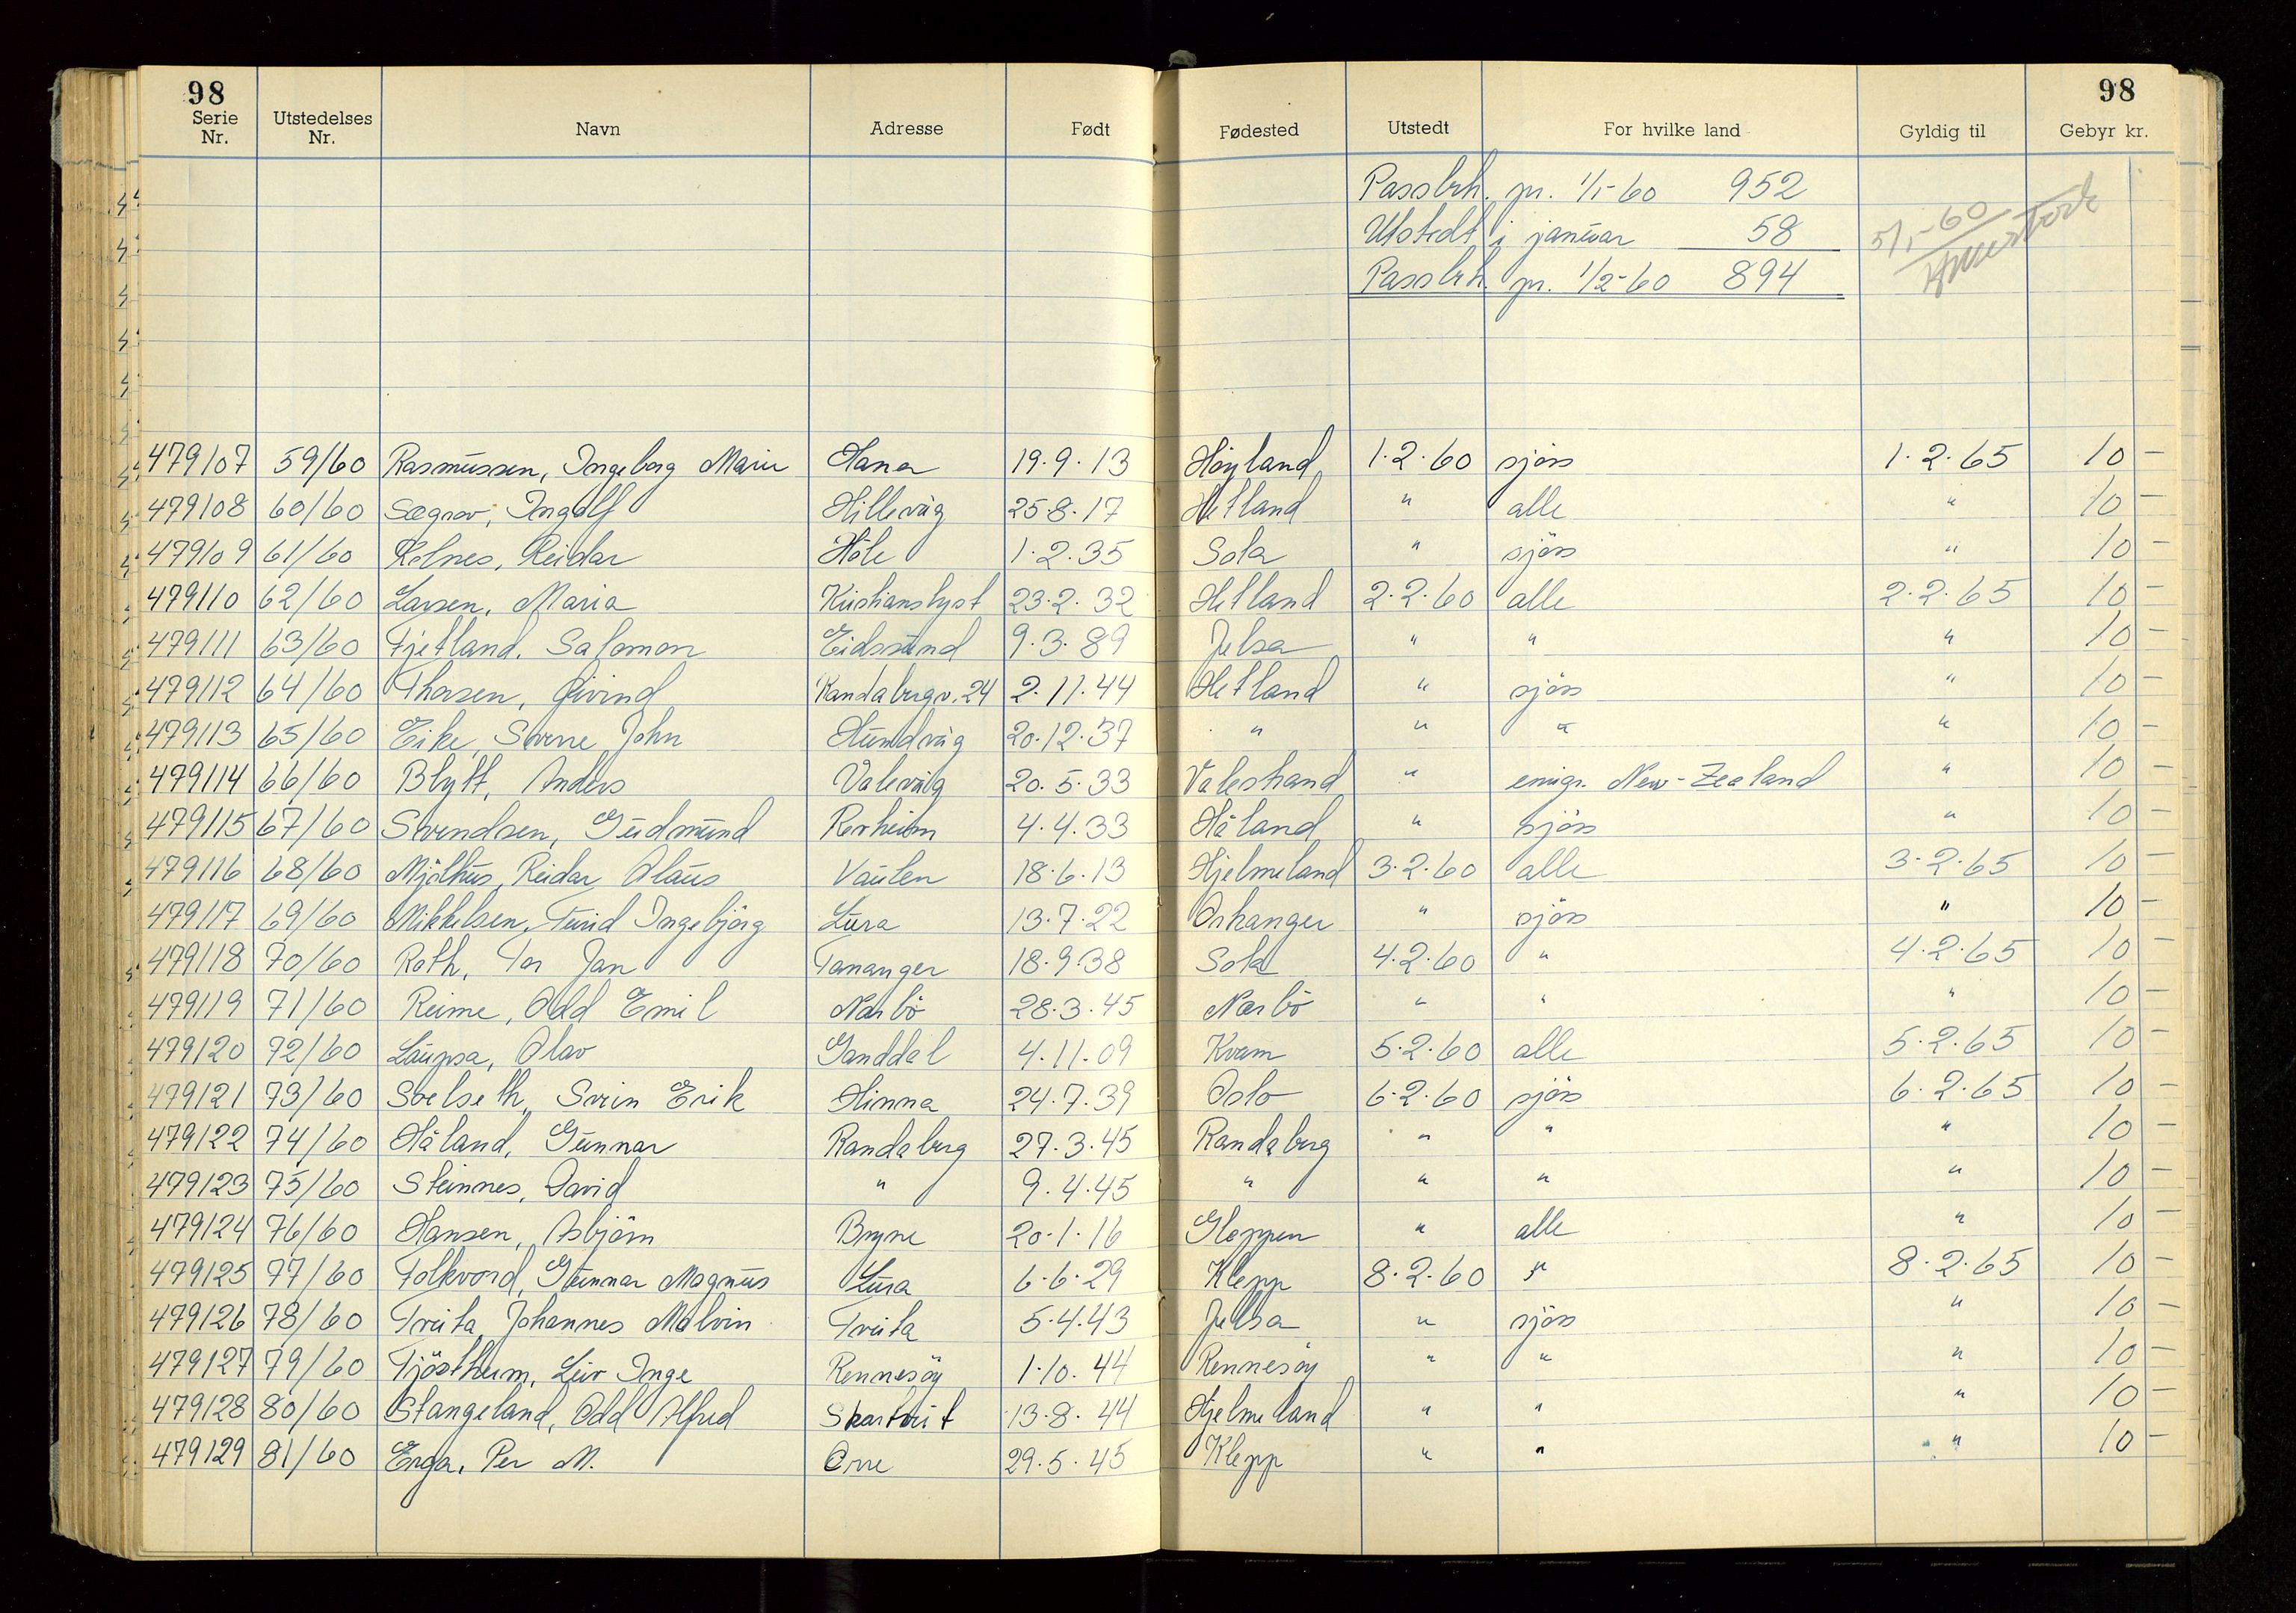 98 98
Serie Nr. Utstedelses Nr. Navn Adresse Født Fødested Utstedt For hvilke land Gyldig til Gebyr kr.
Passbh. pr. 1/1-60 952
Utstedt i januar 58
Passbh. pr. 1/2-60 894
5/1-60
479107 59/60 Rasmussen, Ingeborg Marie Hana 19.9.13 Høyland 1.2.60 sjøs 1.2.65 10 -
479108 60/60 Sægrov, Ingolf Hillevåg 25.8.17 Hetland " alle " 10 -
479109 61/60 Kolnes, Reidar Höle 1.2.35 Sola " sjøs " 10 -
479110 62/60 Larsen, Maria Kristianslyst 23.2.32 Hetland 2.2.60 alle 2.2.65 10 -
479111 63/60 Fjetland, Salomon Eidssund 9.3.89 Jelsa " " " 10 -
479112 64/60 Thorsen, Øivind Randabergv. 24 2.11.44 Hetland " sjøs " 10 -
479113 65/60 Eike, Sverre John Hundvåg 20.12.37 " " " " 10 -
479114 66/60 Blytt, Anders Valevåg 20.5.33 Valestrand " emigr. New-Zealand " 10 -
479115 67/60 Svendsen, Gudmund Revheim 4.4.33 Håland " sjøs " 10 -
479116 68/60 Mjølhus, Reidar Olaus Vaulen 18.6.13 Hjelmeland 3.2.60 alle 3.2.65 10 -
479117 69/60 Mikkelsen, Turid Ingebjörg Lura 13.7.22 Orkanger " sjøs " 10 -
479118 70/60 Roth, Tor Jan Tananger 18.9.38 Sola 4.2.60 " 4.2.65 10 -
479119 71/60 Reime, Odd Emil Nærbö 28.3.45 Nærbö " " " 10 -
479120 72/60 Laupsa, Olav Ganddal 4.11.09 Kvam 5.2.60 alle 5.2.65 10 -
479121 73/60 Soelseth, Svein Erik Hinna 24.7.39 Oslo 6.2.60 sjøs 6.2.65 10 -
479122 74/60 Håland, Gunnar Randaberg 27.3.45 Randaberg " " " 10 -
479123 75/60 Steinnes, David " 9.4.45 " " " " 10 -
479124 76/60 Hansen, Asbjörn Bryne 20.1.16 Gloppen " alle " 10 -
479125 77/60 Folkvord, Gunnar Magnus Lura 6.6.29 Klepp 8.2.60 " 8.2.65 10 -
479126 78/60 Tveita, Johannes Malvin Tveita 5.4.43 Jelsa " sjøs " 10 -
479127 79/60 Tjöstheim, Leiv Inge Rennesöy 1.10.44 Rennesöy " " " 10 -
479128 80/60 Stangeland, Odd Alfred Skartveit 13.8.44 Hjelmeland " " " 10 -
479129 81/60 Erga, Per M. Orre 29.5.45 Klepp " " " 10 -